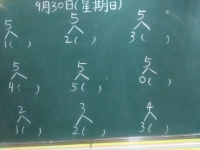 9月30日(星期日)
5 5 5
1( ) 2( ) 3( )
5 5 5
4( ) 5( ) 0( )
2 3 4
1( ) 2( ) 3( )